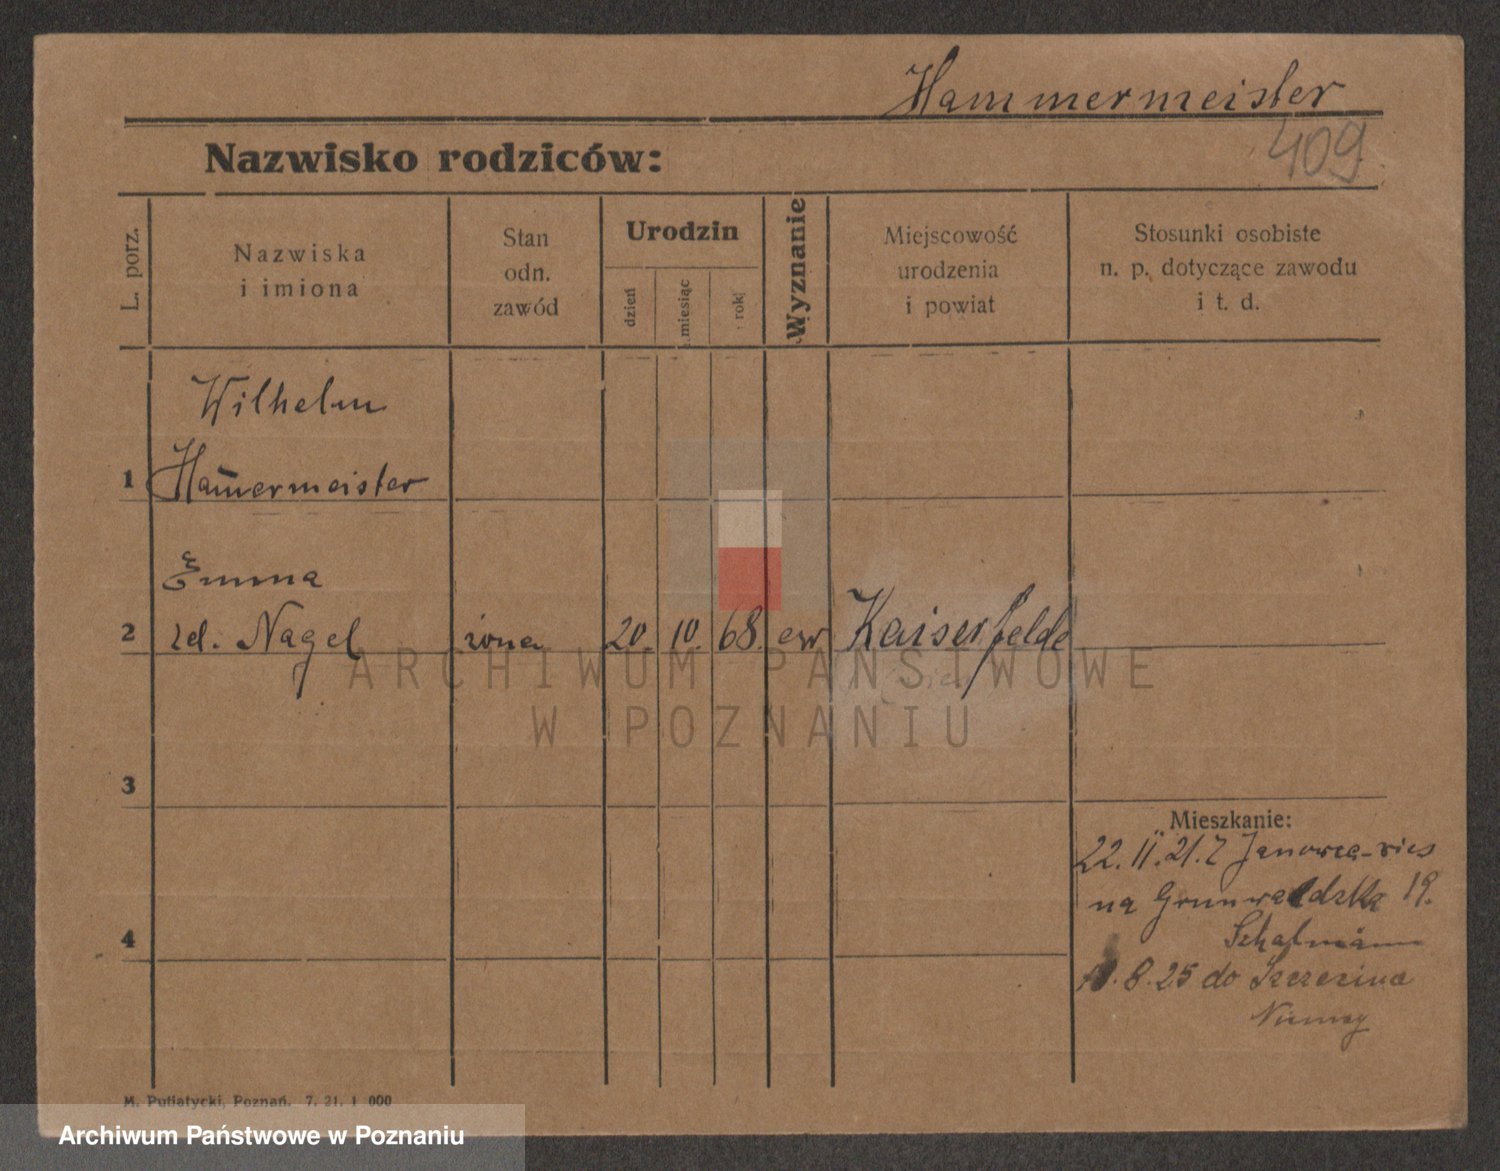 Hammermeister
409
Nazwisko rodziców:
L. porz.
Nazwiska
i imiona
Stan
odn.
zawód
Urodzin
dzień
miesiąc
rok
Wyznanie
Miejscowość
urodzenia
i powiat
Stosunki osobiste
n. p. dotyczące zawodu
i t. d.
Wilhelm
1 Ham̄ermeister
Emma
2 zd. Nagel żona 20. 10. 68. ew Kaiserfelde
3
Mieszkanie:
22. II. 21. z Janowca-wies
na Grunwaldzka 19.
4
8. 25 do Szczecina
Niemcy
M. Putiatycki, Poznań. 7. 21. 1 000
ARCHIWUM PAŃSTWOWE
W POZNANIU
Archiwum Państwowe w Poznaniu